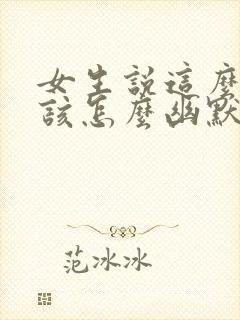 女生説這麼
該怎麼幽默
范冰冰